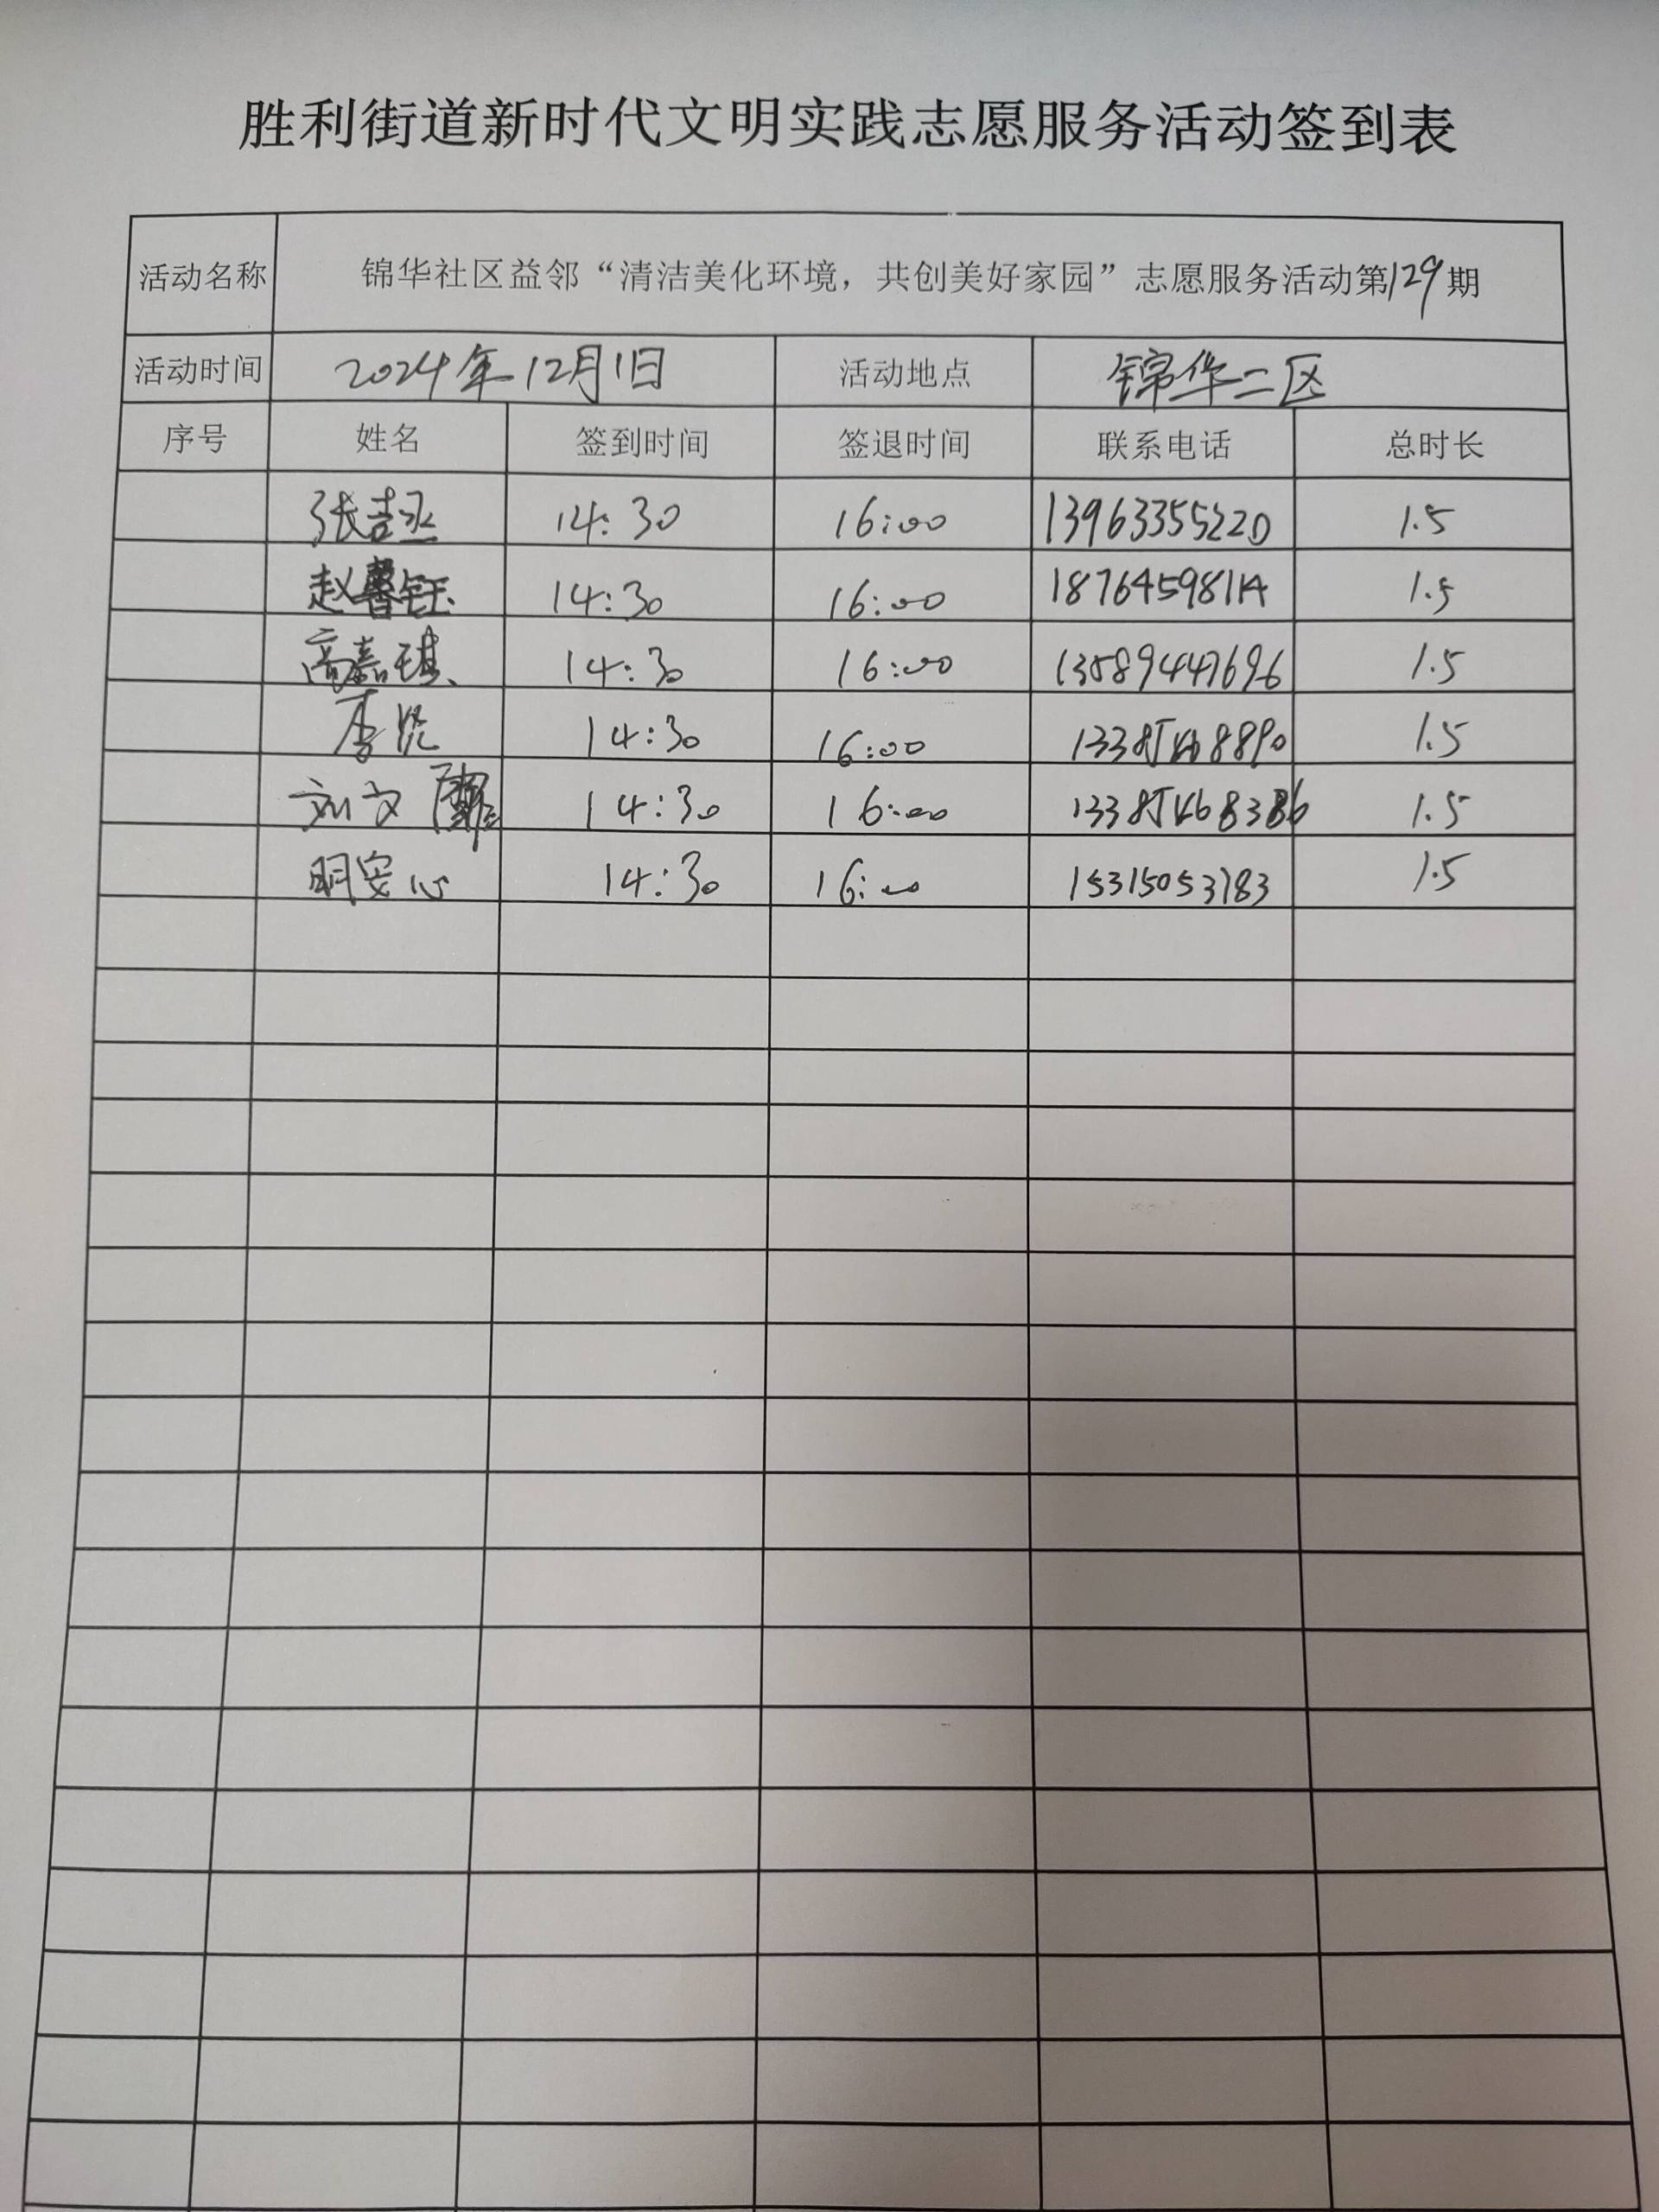 胜利街道新时代文明实践志愿服务活动签到表
活动名称 锦华社区益邻“清洁美化环境，共创美好家园”志愿服务活动第129期
活动时间 2024年12月1日 活动地点 锦华二区
序号 姓名 签到时间 签退时间 联系电话 总时长
张吉丞 14:30 16:00 13963355220 1.5
赵馨钰 14:30 16:00 1.5
高嘉琪 14:30 16:00 13589447696 1.5
李悦 14:30 16:00 13385468890 1.5
刘文 14:30 16:00 1.5
明安心 14:30 16:00 15315053783 1.5